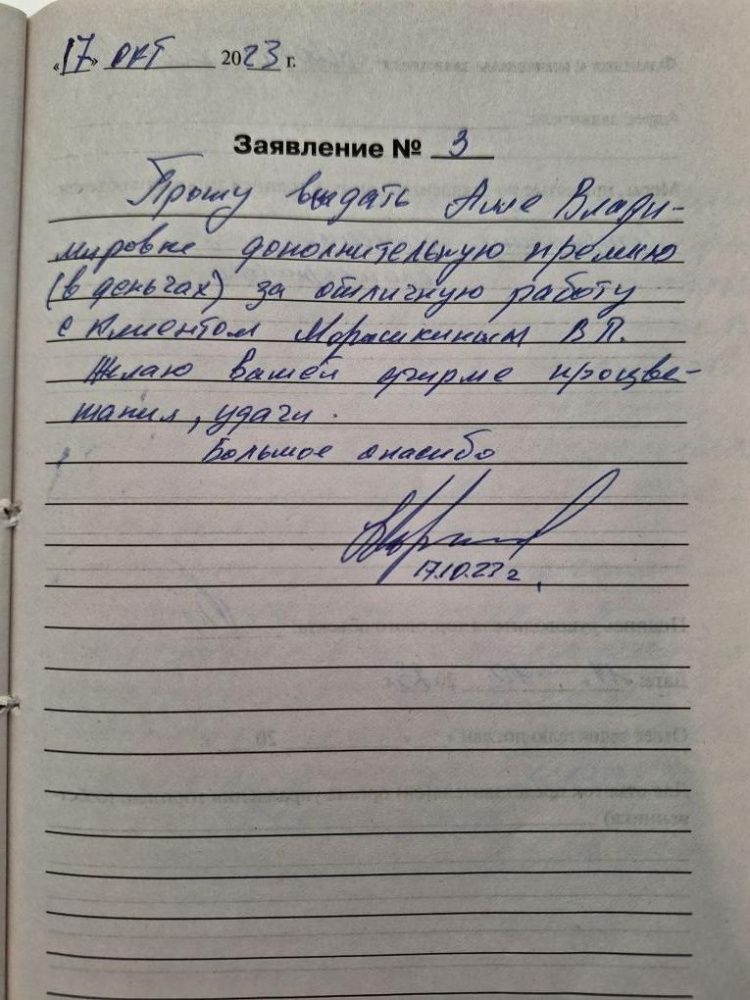 «17» окт 2023 г.
Заявление № 3
Прошу выдать Анне Влади-
мировне дополнительную премию
(в деньгах) за отличную работу
с клиентом Морашкиным В.П.
Желаю вашей фирме процве-
тания, удачи.
Большое спасибо
17.10.23 г.